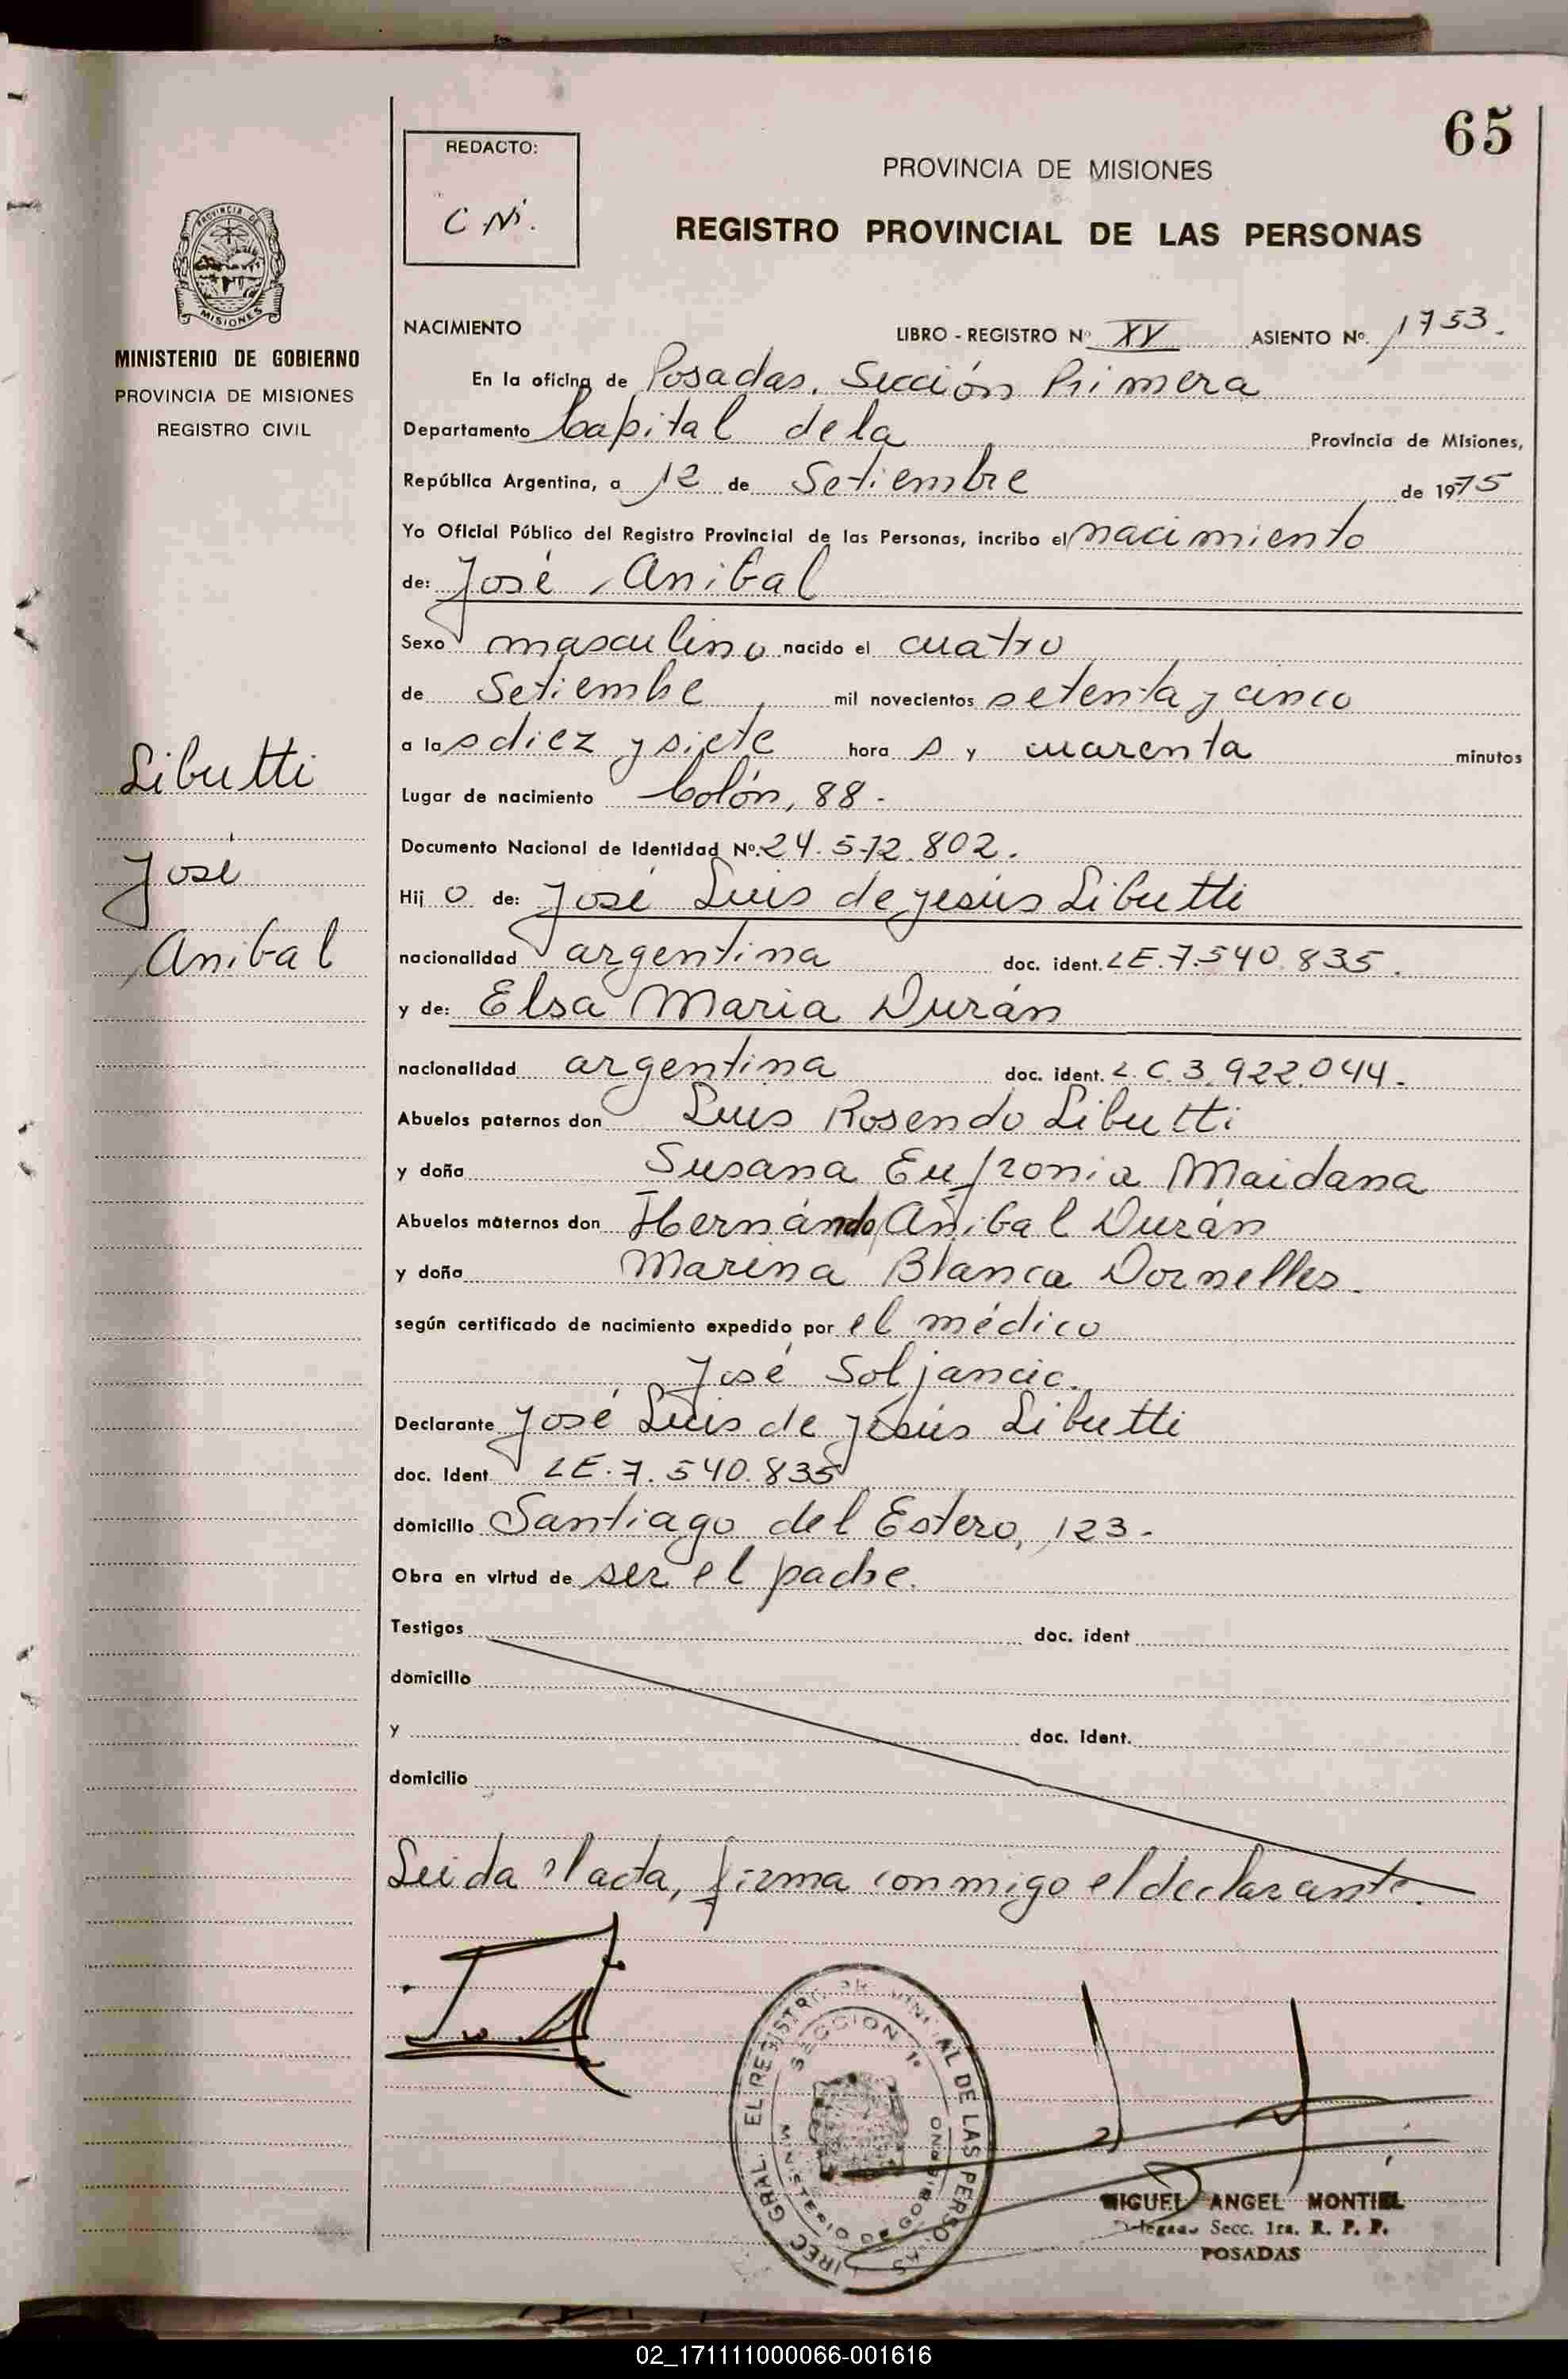 65
REDACTO:
C Ni.
PROVINCIA DE MISIONES
REGISTRO PROVINCIAL DE LAS PERSONAS
PROVINCIA DE
MISIONES
MINISTERIO DE GOBIERNO
PROVINCIA DE MISIONES
REGISTRO CIVIL
NACIMIENTO LIBRO - REGISTRO Nº XV ASIENTO Nº. 1753.
En la oficina de Posadas, Sección Primera
Departamento Capital de la Provincia de Misiones,
República Argentina, a 12 de Setiembre de 1975
Yo Oficial Público del Registro Provincial de las Personas, incribo el nacimiento
de: José Anibal
Sexo masculino nacido el cuatro
de Setiembre mil novecientos setenta y cinco
a las diez y siete hora s y cuarenta minutos
Lugar de nacimiento Colón, 88.-
Documento Nacional de Identidad Nº. 24.572.802.
Hij o de: José Luis de Jesús Libutti
nacionalidad argentina doc. ident. LE.7.540.835.
y de: Elsa Maria Durán
nacionalidad argentina doc. ident. L.C.3.922.044.
Abuelos paternos don Luis Rosendo Libutti
y doña Susana Eufronia Maidana
Abuelos maternos don Hernándo Anibal Durán
y doña Marina Blanca Dornelles.
según certificado de nacimiento expedido por el médico
José Soljancic.
Declarante José Luis de Jesús Libutti
doc. Ident. LE.7.540.835
domicilio Santiago del Estero, 123.-
Obra en virtud de ser el padre.
Testigos doc. ident
domicilio
y doc. ident.
domicilio
Leida el acta, firma conmigo el declarante.
Libutti
José
Anibal
DIREC GRAL. EL REGISTRO PROVINCIAL DE LAS PERSONAS
SECCION 1ª
MINISTERIO DE GOBIERNO
MIGUEL ANGEL MONTIEL
Delegado Secc. 1ra. R. P. P.
POSADAS
02_171111000066-001616